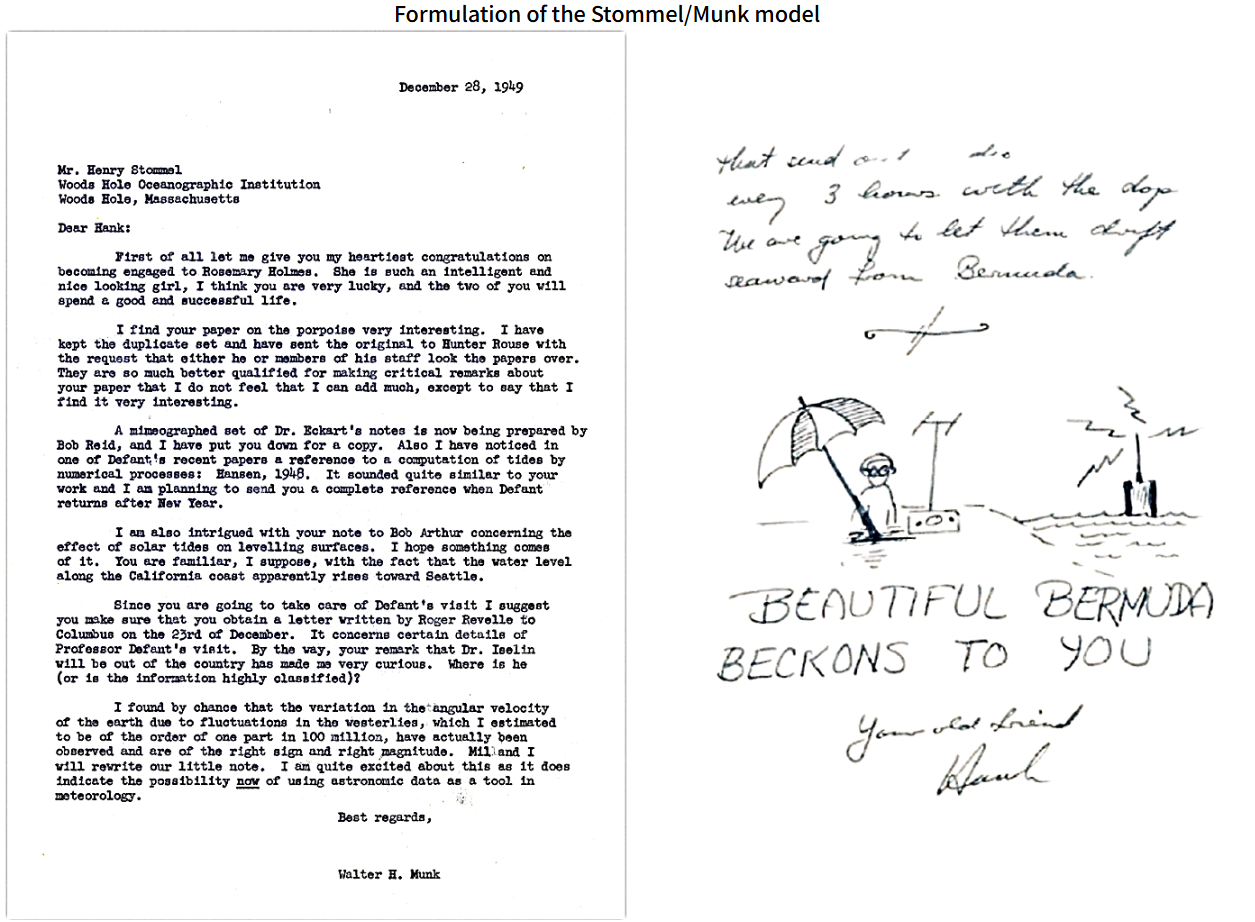 Formulation of the Stommel/Munk model
December 28, 1949
Mr. Henry Stommel
Woods Hole Oceanographic Institution
Woods Hole, Massachusetts
Dear Hank:
First of all let me give you my heartiest congratulations on
becoming engaged to Rosemary Holmes. She is such an intelligent and
nice looking girl, I think you are very lucky, and the two of you will
spend a good and successful life.
I find your paper on the porpoise very interesting. I have
kept the duplicate set and have sent the original to Hunter Rouse with
the request that either he or members of his staff look the papers over.
They are so much better qualified for making critical remarks about
your paper that I do not feel that I can add much, except to say that I
find it very interesting.
A mimeographed set of Dr. Eckart's notes is now being prepared by
Bob Reid, and I have put you down for a copy. Also I have noticed in
one of Defant's recent papers a reference to a computation of tides by
numerical processes: Hansen, 1948. It sounded quite similar to your
work and I am planning to send you a complete reference when Defant
returns after New Year.
I am also intrigued with your note to Bob Arthur concerning the
effect of solar tides on levelling surfaces. I hope something comes
of it. You are familiar, I suppose, with the fact that the water level
along the California coast apparently rises toward Seattle.
Since you are going to take care of Defant's visit I suggest
you make sure that you obtain a letter written by Roger Revelle to
Columbus on the 23rd of December. It concerns certain details of
Professor Defant's visit. By the way, your remark that Dr. Iselin
will be out of the country has made me very curious. Where is he
(or is the information highly classified)?
I found by chance that the variation in the angular velocity
of the earth due to fluctuations in the westerlies, which I estimated
to be of the order of one part in 100 million, have actually been
observed and are of the right sign and right magnitude. Mil and I
will rewrite our little note. I am quite excited about this as it does
indicate the possibility now of using astronomic data as a tool in
meteorology.
Best regards,
Walter H. Munk
that send
every 3 hours with the
We are going to let them drift
seaward from Bermuda.
BEAUTIFUL BERMUDA
BECKONS TO YOU
Your old friend
Hank